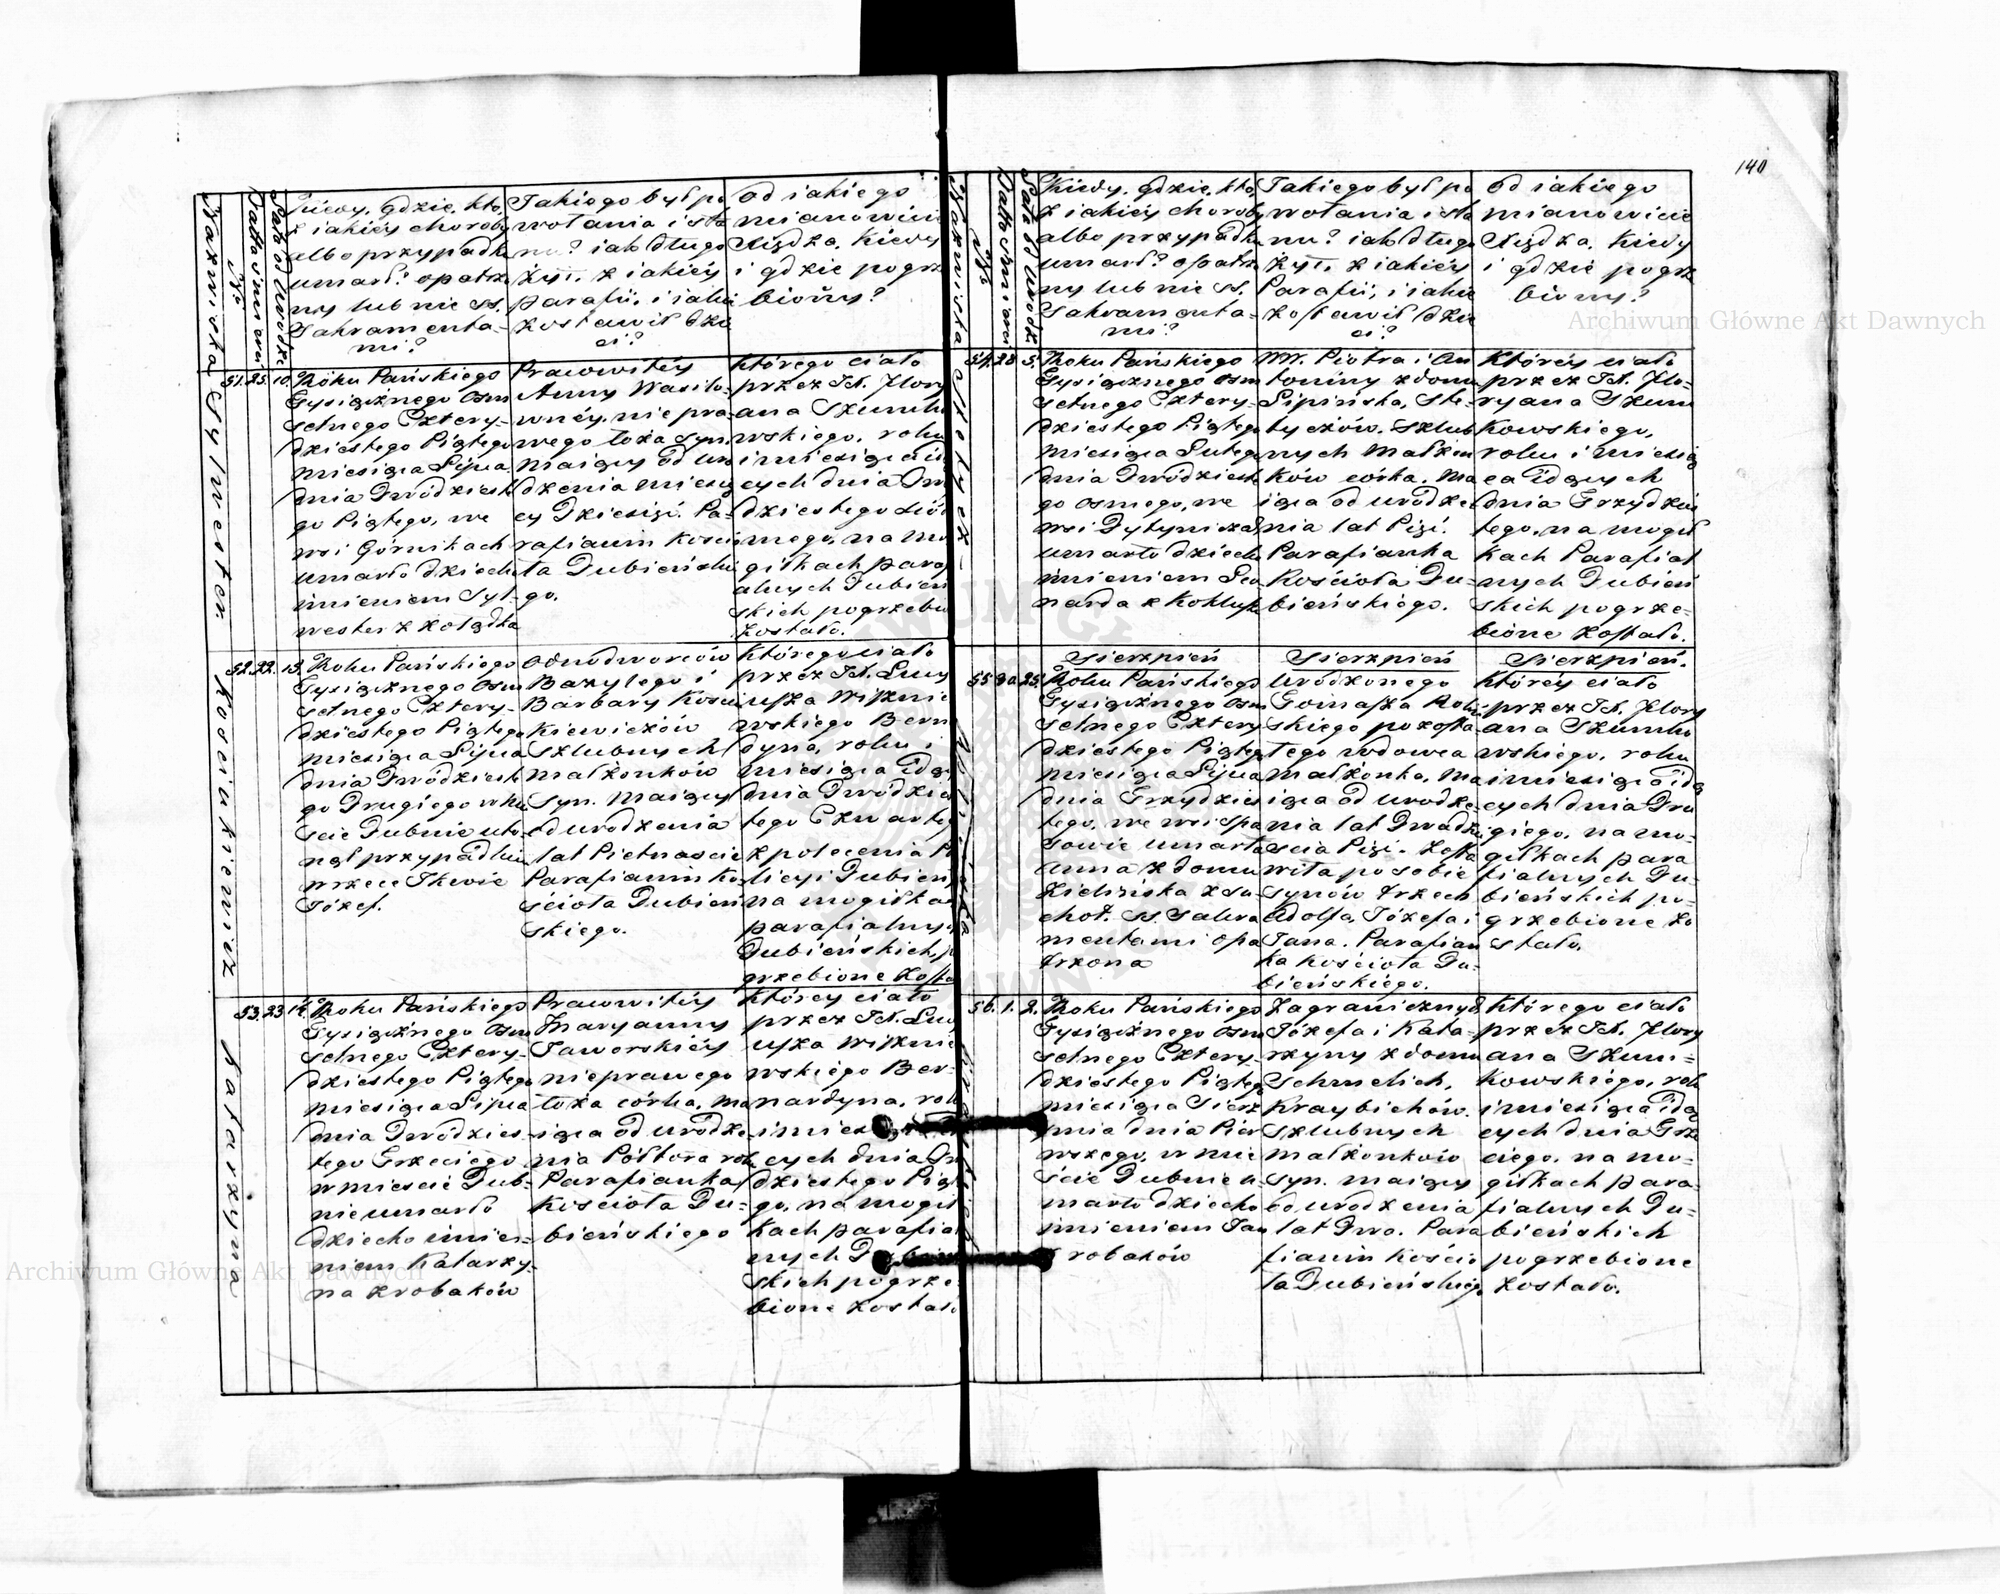 140
Nazwiska
No
Datta śmierci
Kiedy, gdzie, kto,
z iakiéy choroby
albo przypadku
umarł? opatrzo
ny lub nie SS.
Sakramenta-
mi?
Jakiego był po
wołania i sta
nu? iak długo
żył, z iakiéy
parafii, i iakie
zostawił dzie
ci?
Od iakiego
mianowicie
Xiędza, kiedy
i gdzie pogrze
biony?
Sylwester
51. 25. 10.
Roku Pańskiego
Tysiącznego Osm
setnego Cztery-
dziestego Piątego
miesiąca Lipca
dnia Dwódziest
go Piątego, we
wsi Górnikach
umarło dziecko
imieniem Syl-
wester z żołądka
Prawowitéy
Anny Wasilo
wnéy, niepra
wego łoża syn,
maiący od uro
dzenia miesię
cy Dziesięć. Pa-
rafianin Kościo
ła Dubieńskie
go.
którego ciało
przez JX. Flory
ana Szumko
wskiego, roku
i miesiąca id
cych dnia Dw
dziestego Siód
mego, na mo
giłkach para
alnych Dubień
skich pogrzebio
zostało.
Kościukiewicz
52. 22. 15.
Roku Pańskiego
Tysiącznego Osm
setnego Cztery-
dziestego Piątego
miesiąca Lipca
dnia Dwódziest
go Drugiego w mie
ście Dubnie uto
nął przypadkiem
w rzece Ikwie
Józef.
Odnodworców
Bazylego i
Barbary Kościu
kiewiczów
szlubnych
małżonków
syn. Maiący
od urodzenia
lat Pietnaście
Parafianin Ko
ścioła Dubień
skiego.
którego ciało
przez JX. Lucy
usza Wisznie
wskiego Bern
dyna, roku i
miesiąca idą
dnia Dwódzies
tego Czwarteg
z polecenia Po
licyi Dubień
na mogiłkac
parafialny
Dubieńskich, p
grzebione zosta
Katarzyna
53. 23. 1½
Roku Pańskiego
Tysiącznego Osm
setnego Cztery-
dziestego Piątego
miesiąca Lipca
dnia Dwódzies-
tego Trzeciego
w mieście Dub-
nie umarło
dziecko imie-
niem Katarzy-
na z robaków
Prawowitéy
Maryanny
Jaworskiéy
nieprawego
łoża córka, ma
iąca od urodze-
nia Półtora roku
Parafianka
Kościoła Du-
bieńskiego
któréy ciało
przez JX. Luc
usza Wisznie
wskiego Ber-
nardyna, rok
i miesiąca
cych dnia Dw
dziestego Piąt
go, na mogił
kach parafia
nych Dubień
skich pogrze-
bione zostało
Nazwiska
No
Datta śmierci
Kiedy, gdzie, kto,
z iakiéy choroby
albo przypadku
umarł? opatrzo
ny lub nie SS.
Sakramenta-
mi?
Jakiego był po
wołania i sta
nu? iak długo
żył, z iakiéy
Parafii, i iakie
zostawił dzie
ci?
Od iakiego
mianowicie
Xiędza, kiedy
i gdzie pogrze
biony?
54. 28. 5.
Roku Pańskiego
Tysiącznego Osm
setnego Cztery-
dziestego Piątego
miesiąca
dnia Dwódziest
go Osmego, we
wsi
umarło dziecko
imieniem Leo
narda z kokluszu
WW. Piotra i An
toniny z domu
Lipińska,
szlub
nych małżon
ków córka, ma
iąca od urodze
nia lat Pięć.
Parafianka
Kościoła Du-
bieńskiego.
któréy ciało
przez JX. Flo-
ryana Szum
kowskiego,
roku i miesią
ca idących
dnia Trzydzies
tego, na mogił
kach Parafial
nych Dubień
skich pogrze-
bione zostało.
Sierzpień
Sierzpień
Sierzpień.
55. 30. 25.
Roku Pańskiego
Tysiącznego Osm
setnego Cztery
dziestego Piąteg
miesiąca Lipca
dnia Trzydzies
tego, we wsi Spa
sowie umarła
Anna z domu
Zielińska z su
chot. SS. Sakra
mentami opa
trzona
Urodzonego
Tomasza
skiego pozosta
łego wdowca
małżonka, ma
iąca od urodze
nia lat Dwadzie
ścia Pięć. Zosta
wiła po sobie
synów trzech
Adolfa, Józefa i
Jana. Parafian
ka Kościoła Du-
bieńskiego.
któréy ciało
przez JX. Flory
ana Szumko
wskiego, roku
i miesiąca idą
cych dnia Dru
giego, na mo-
giłkach para
fialnych Du-
bieńskich po-
grzebione zo
stało.
56. 1. 2.
Roku Pańskiego
Tysiącznego Osm
setnego Cztery-
dziestego Piąteg
miesiąca Sierz
pnia dnia Pier
wszego, w mie
ście Dubnie u-
marło dziecko
imieniem Jan
z robaków
Zagranicznych
Józefa i Kata-
rzyny z domu
Schmelich,
Kraybichów.
szlubnych
małżonków
syn. maiący
od urodzenia
lat Dwa. Para
fianin Kościo
ła Dubieńskiego
którego ciało
przez JX. Flory
ana Szum-
kowskiego, rok
i miesiąca idą
cych dnia Trze
ciego, na mo-
giłkach para-
fialnych Du-
bieńskich
pogrzebione
zostało.
Archiwum Główne Akt Dawnych
Archiwum Główne Akt Dawnych